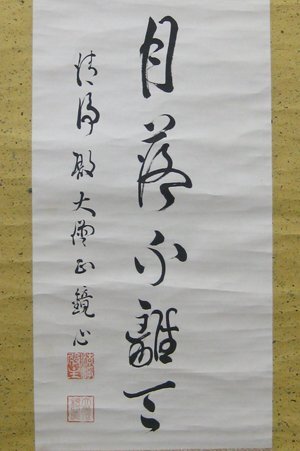 月落不離天
清浄殿大僧正鏡心